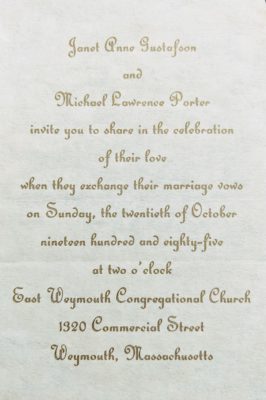 Janet Anne Gustafson
and
Michael Lawrence Porter
invite you to share in the celebration
of their love
when they exchange their marriage vows
on Sunday, the twentieth of October
nineteen hundred and eighty-five
at two o'clock
East Weymouth Congregational Church
1320 Commercial Street
Weymouth, Massachusetts